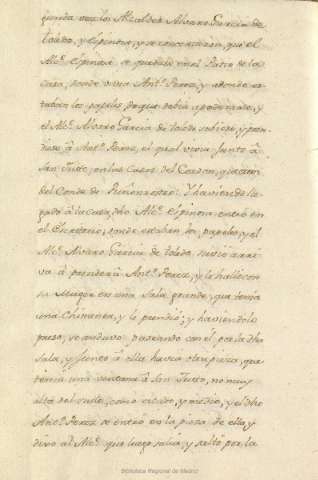 junta con los Alcaldes Alvaro Garcia de
Toledo, y Espinosa, y se concertaron, que el
Alc.e Espinosa se quedase en el Patio de la
casa, donde vivia Ant.o Perez, y adonde es-
taban los papeles, de que debia apoderarse, y
el Alc.e Alvaro Garcia de Toledo subiese, y pren-
diese à Ant.o Perez, el qual vivia junto à
San Justo, en las Casas del Cordon, que son
del Conde de Puñonrostro: Y haviendo lle-
gado à la casa, dho Alc.e Espinosa entró en
el Escritorio, donde estaban los papeles, y el
Alc.e Alvaro Garcia de Toledo subió arri-
va à prender à Ant.o Perez, y le halló con
su Muger en una Sala grande, que tenia
una Chimenea, y le prendió; y haviendole
preso, se anduvo paseando con él por la dha
Sala, y junto à ella havia otra pieza, que
tenia una ventana à San Justo, no muy
alta del suelo, como estado, y medio, y el dho
Ant.o Perez se entró en la pieza de ella, y
dixo al Alc.e que luego salia, y saltó por la
Biblioteca Regional de Madrid